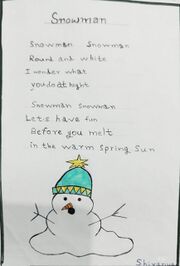 Snowman
Snowman Snowman
Round and white
I wonder what
you do at night
Snowman Snowman
Let's have fun
Before you melt
in the warm spring Sun